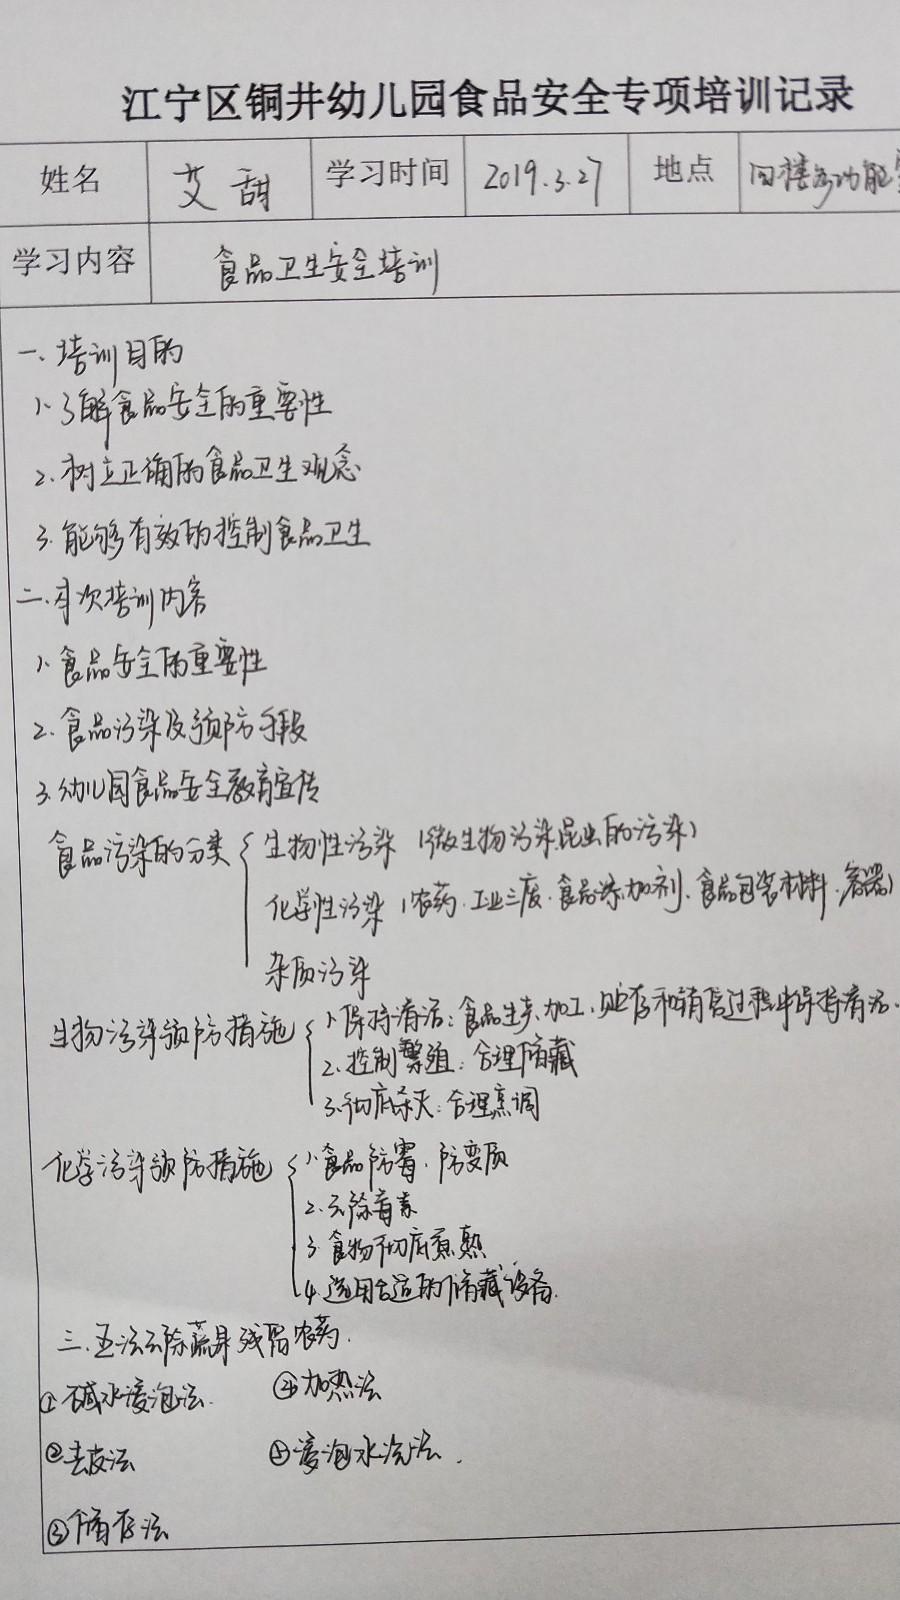 江宁区铜井幼儿园食品安全专项培训记录
姓名 艾甜 学习时间 2019.3.27 地点 四楼多功能
学习内容 食品卫生安全培训
一、培训目的
1、了解食品安全的重要性
2、树立正确的食品卫生观念
3、能够有效的控制食品卫生
二、本次培训内容
1、食品安全的重要性
2、食品污染及预防手段
3、幼儿园食品安全教育宣传
食品污染的分类 生物性污染（微生物污染昆虫的污染）
化学性污染（农药、工业三废、食品添加剂、食品包装材料、容器）
杂质污染
生物污染预防措施 1、保持清洁：食品生产、加工、贮存和销售过程中保持清洁.
2、控制繁殖：合理储藏
3、彻底杀灭：合理烹调
化学污染预防措施 1、食品防霉、防变质
2、去除毒素
3、食物彻底煮熟
4、选用合适的储藏设备.
三、五法去除蔬果残留农药.
①碱水浸泡法. ④加热法
②去皮法 ⑤浸泡水洗法.
③储存法